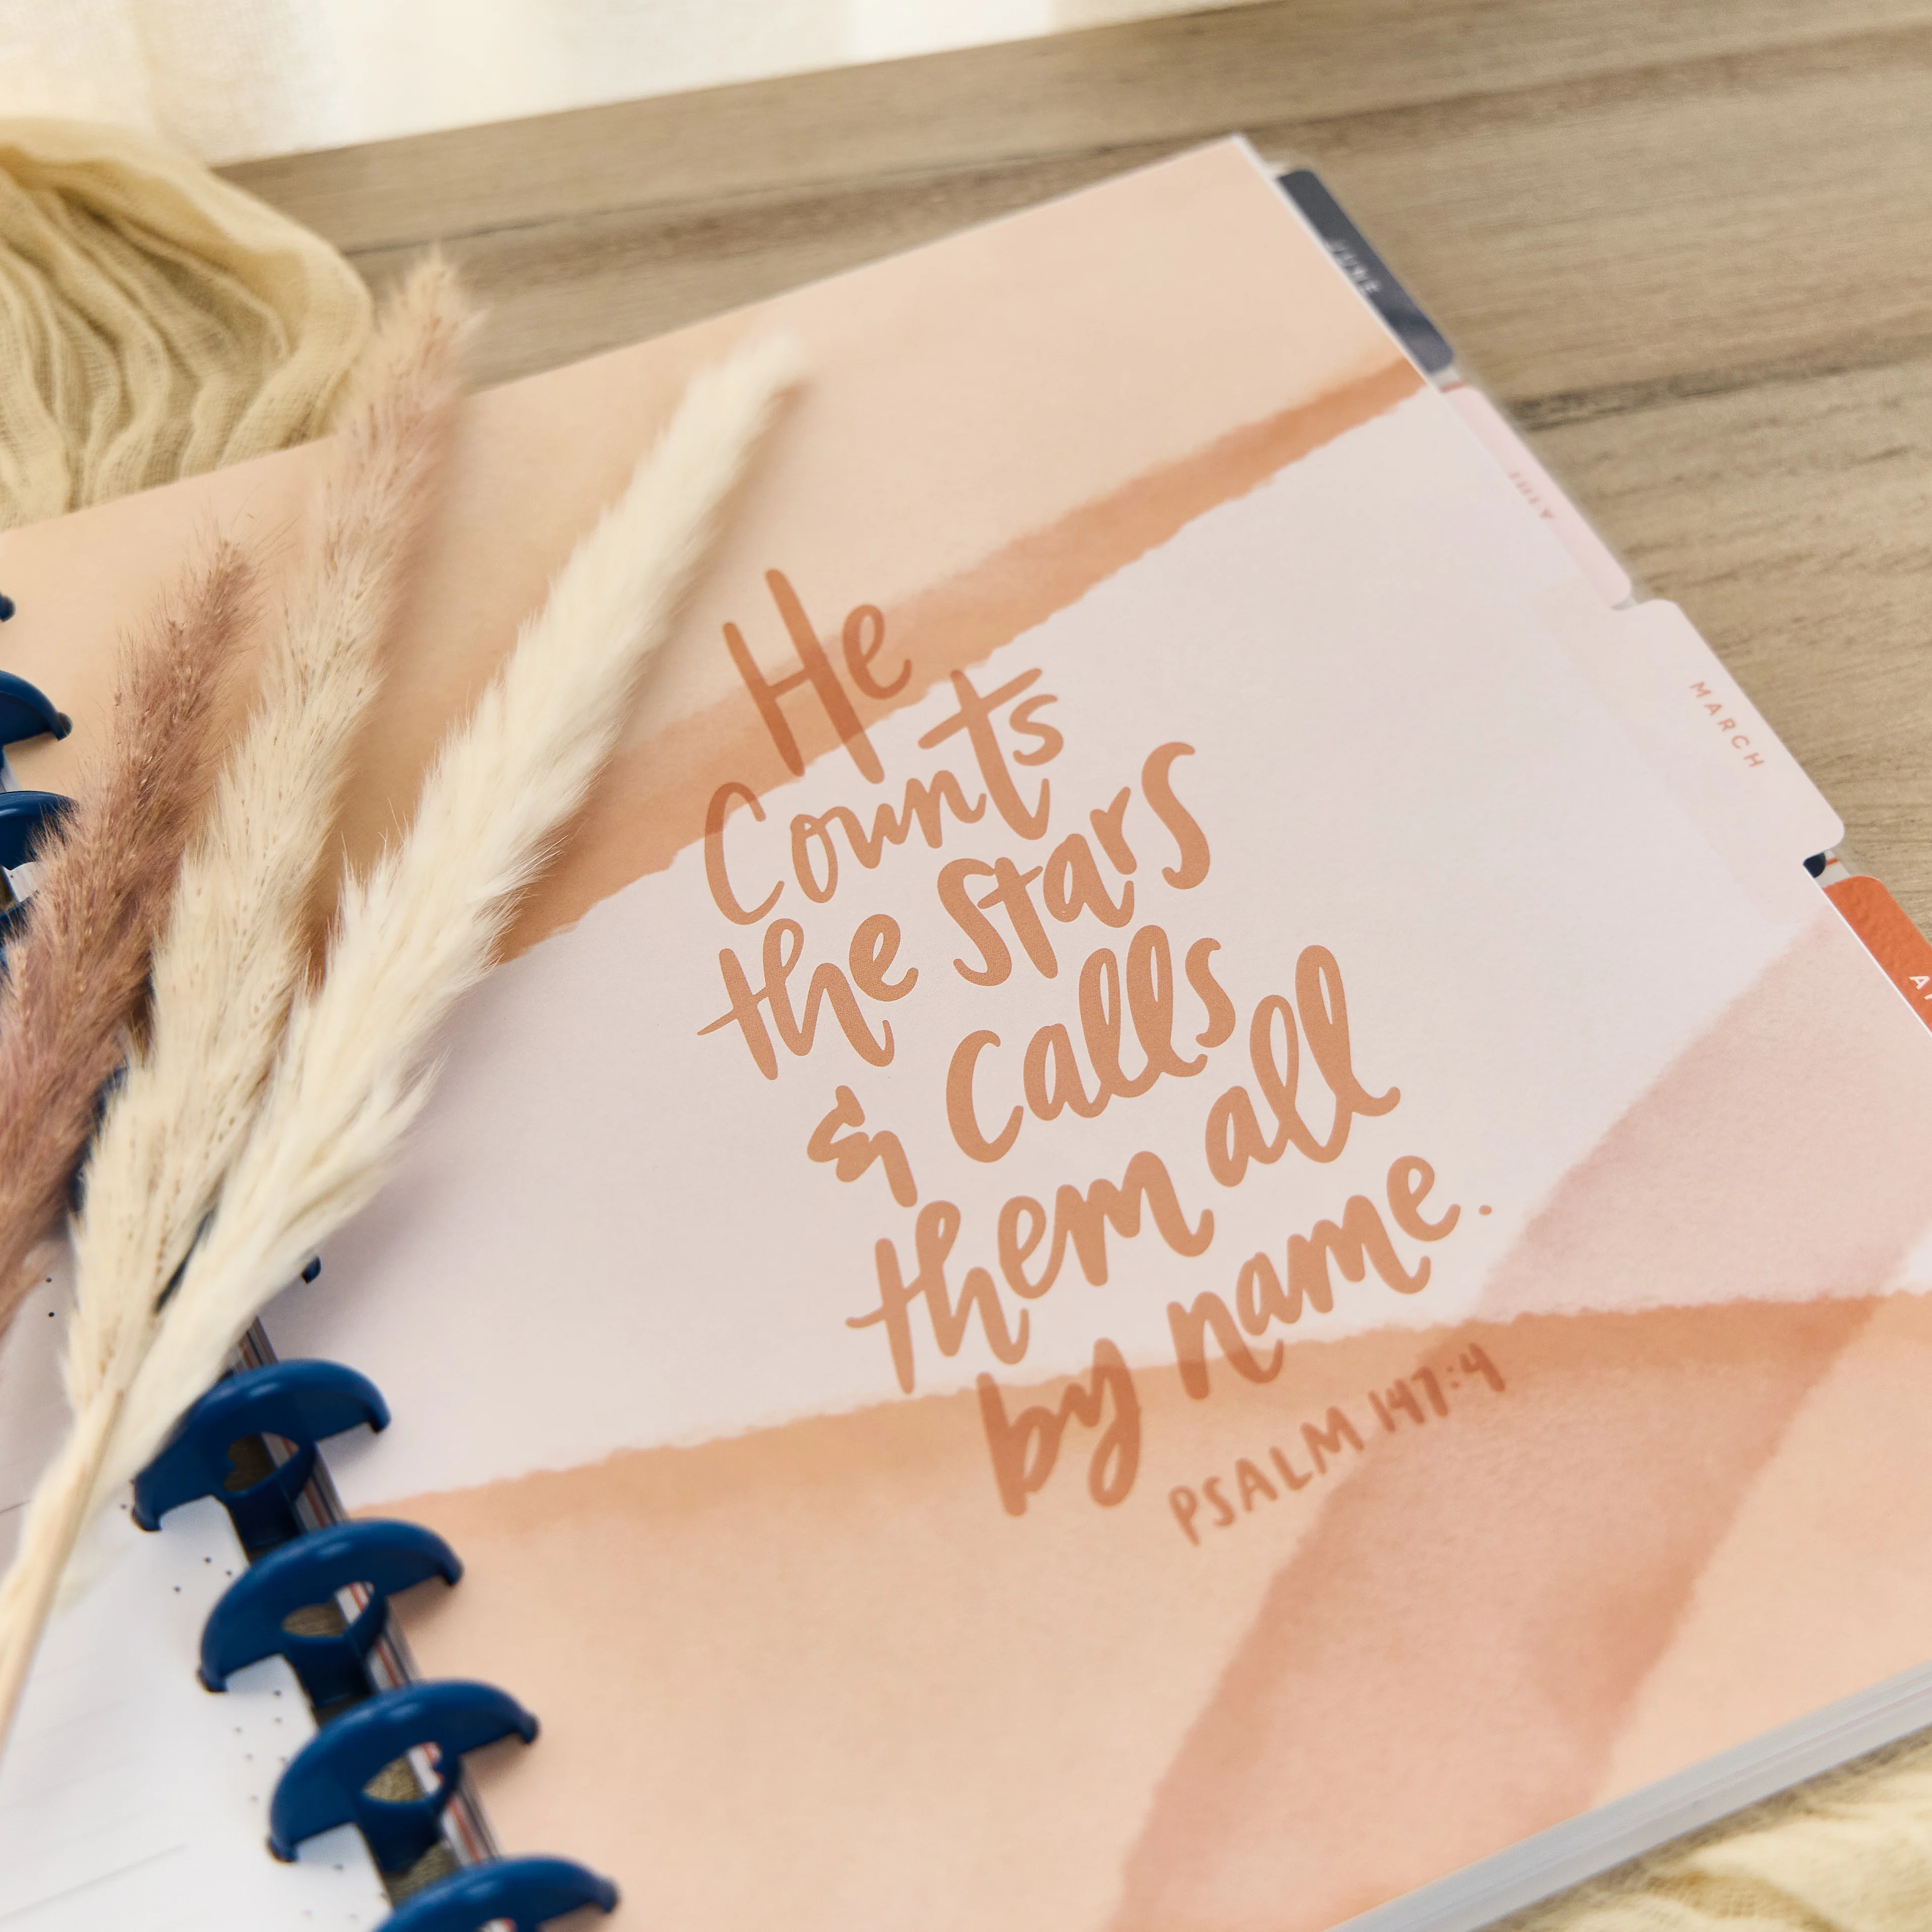 He
Counts
the Stars
& Calls
them all
by name.
PSALM 147:4
JUNE
JULY
MARCH